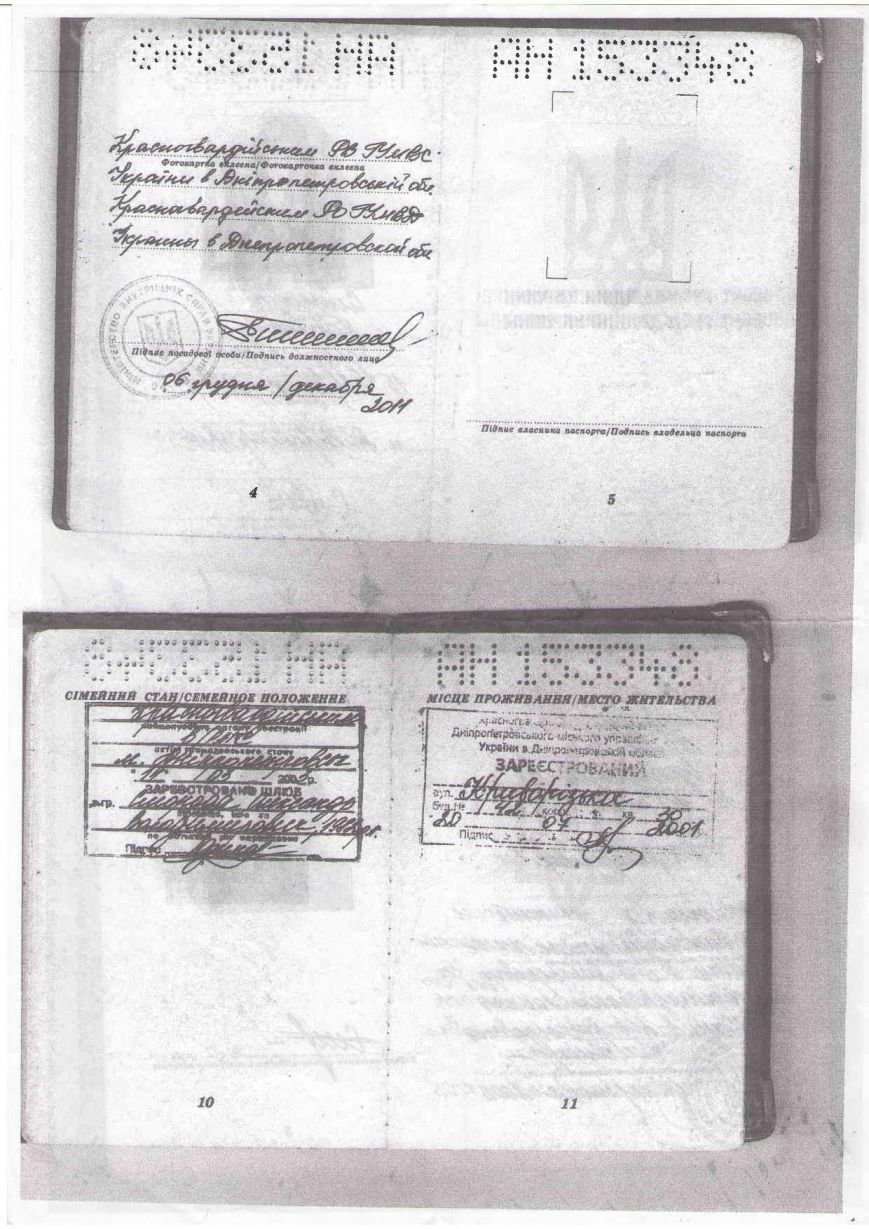 АН 153348
Красногвардійським РВ ГУМВС
Фотокартка вклеєна/Фотокарточка вклеена
України в Дніпропетровській обл
Красногвардейским РО ГУМВД
Украины в Днепропетровской обл
Підпис посадової особи/Подпись должностного лица
06 грудня / декабря
2011
4
АН 153348
Підпис власника паспорта/Подпись владельца паспорта
5
АН 153348
СІМЕЙНИЙ СТАН/СЕМЕЙНОЕ ПОЛОЖЕННЯ
актів громадянського стану
м. Дніпропетровськ
ЗАРЕЄСТРОВАНО ШЛЮБ
з гр.
Підпис
10
АН 153348
МІСЦЕ ПРОЖИВАННЯ/МЕСТО ЖИТЕЛЬСТВА
Дніпропетровського міського управління
України в Дніпропетровській області
ЗАРЕЄСТРОВАНИЙ
вул. Криворізька
Буд.№ 42 корп. кв. 38
20 04 2001
Підпис
11